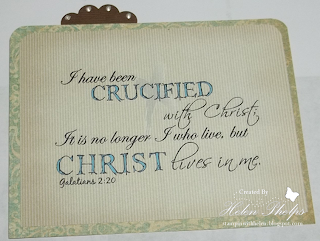 I have been
CRUCIFIED
with Christ;
It is no longer I who live, but
CHRIST lives in me.
Galatians 2:20
Created By
Helen Phelps